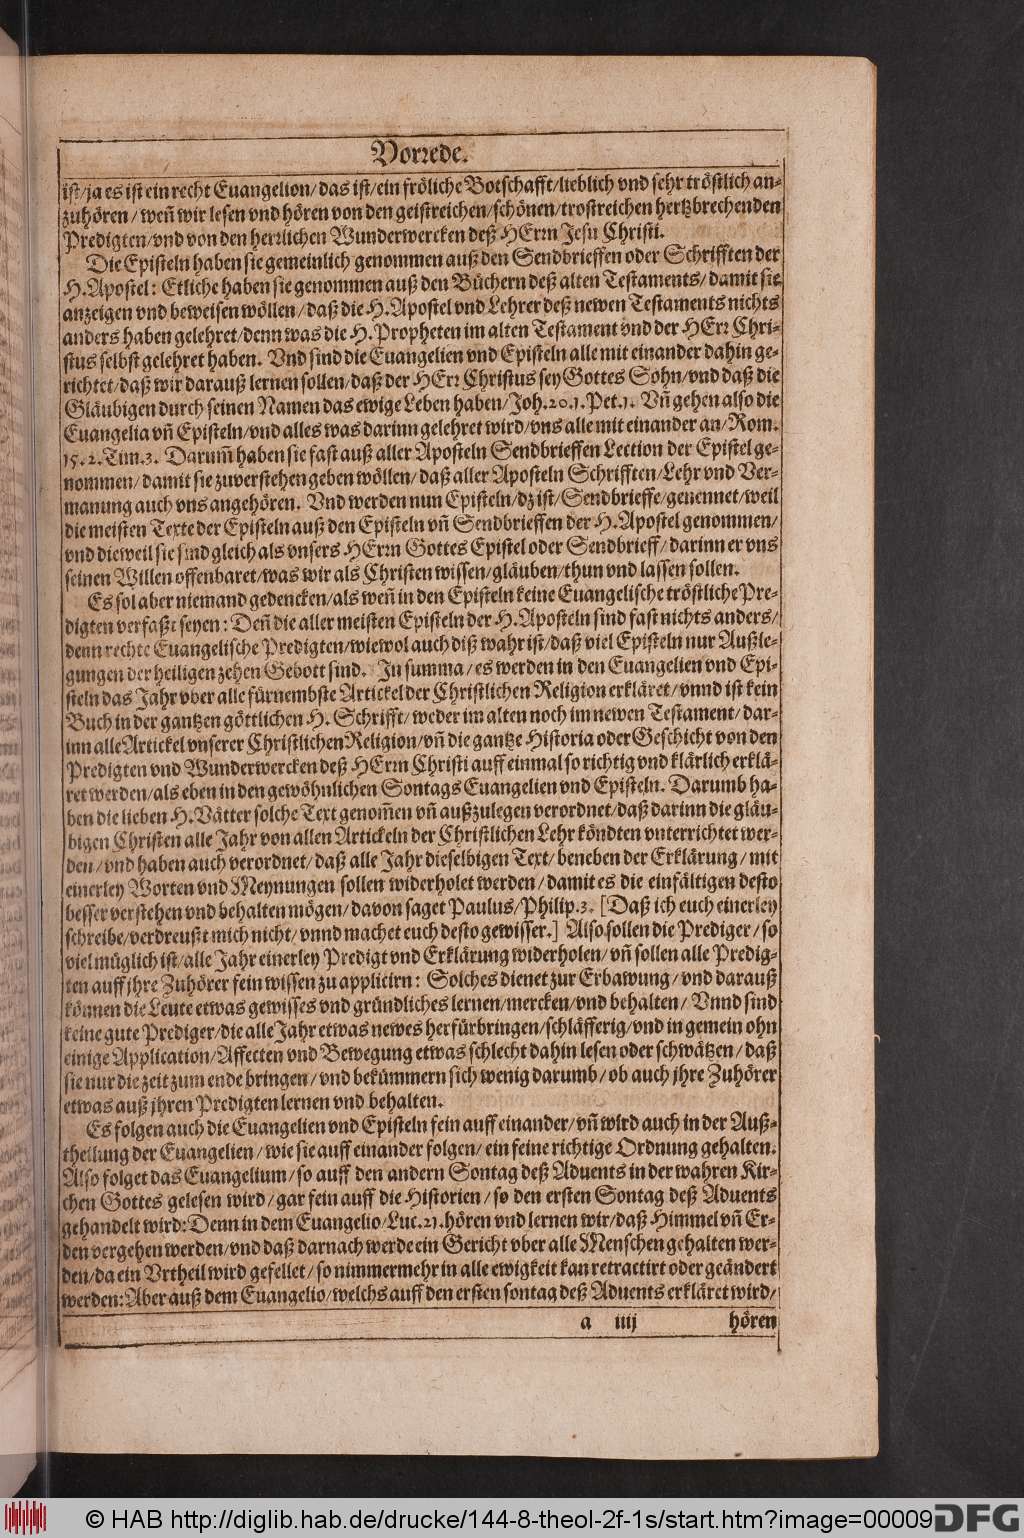 Vorrede.
ist/ ja es ist ein recht Euangelion/ das ist/ ein fröliche Botschafft/ lieblich vnd sehr tröstlich an-
zuhören/ weñ wir lesen vnd hören von den geistreichen/ schönen/ trostreichen hertzbrechenden
Predigten/ vnd von den herrlichen Wunderwercken deß HErrn Jesu Christi.
Die Episteln haben sie gemeinlich genommen auß den Sendbrieffen oder Schrifften der
H. Apostel: Etliche haben sie genommen auß den Büchern deß alten Testaments/ damit sie
anzeigen vnd beweisen wöllen/ daß die H. Apostel vnd Lehrer deß newen Testaments nichts
anders haben gelehret/ denn was die H. Propheten im alten Testament vnd der HErr Chri-
stus selbst gelehret haben. Vnd sind die Euangelien vnd Episteln alle mit einander dahin ge-
richtet/ daß wir darauß lernen sollen/ daß der HErr Christus sey Gottes Sohn/ vnd daß die
Gläubigen durch seinen Namen das ewige Leben haben/ Joh. 20. 1. Pet. 1. Vñ gehen also die
Euangelia vñ Episteln/ vnd alles was darinn gelehret wird/ vns alle mit einander an/ Rom.
15. 2. Tim. 3. Darum̃ haben sie fast auß aller Aposteln Sendbrieffen Lection der Epistel ge-
nommen/ damit sie zuverstehen geben wöllen/ daß aller Aposteln Schrifften/ Lehr vnd Ver-
manung auch vns angehören. Vnd werden nun Episteln/ dz ist/ Sendbrieffe/ genennet/ weil
die meisten Texte der Episteln auß den Episteln vñ Sendbrieffen der H. Apostel genommen/
vnd dieweil sie sind gleich als vnsers HErrn Gottes Epistel oder Sendbrieff/ darinn er vns
seinen Willen offenbaret/ was wir als Christen wissen/ gläuben/ thun vnd lassen sollen.
Es sol aber niemand gedencken/ als weñ in den Episteln keine Euangelische tröstliche Pre-
digten verfaßt seyen: Deñ die aller meisten Episteln der H. Aposteln sind fast nichts anders/
denn rechte Euangelische Predigten/ wiewol auch diß wahr ist/ daß viel Episteln nur Außle-
gungen der heiligen zehen Gebott sind. In summa/ es werden in den Euangelien vnd Epi-
steln das Jahr vber alle fürnembste Artickel der Christlichen Religion erkläret/ vnnd ist kein
Buch in der gantzen göttlichen H. Schrifft/ weder im alten noch im newen Testament/ dar-
inn alle Artickel vnserer Christlichen Religion/ vñ die gantze Historia oder Geschicht von den
Predigten vnd Wunderwercken deß HErrn Christi auff einmal so richtig vnd klärlich erklä-
ret werden/ als eben in den gewöhnlichen Sontags Euangelien vnd Episteln. Darumb ha-
ben die lieben H. Vätter solche Text genom̃en vñ außzulegen verordnet/ daß darinn die gläu-
bigen Christen alle Jahr von allen Artickeln der Christlichen Lehr köndten vnterrichtet wer-
den/ vnd haben auch verordnet/ daß alle Jahr dieselbigen Text/ beneben der Erklärung/ mit
einerley Worten vnd Meynungen sollen widerholet werden/ damit es die einfältigen desto
besser verstehen vnd behalten mögen/ davon saget Paulus/ Philip. 3. [Daß ich euch einerley
schreibe/ verdreußt mich nicht/ vnnd machet euch desto gewisser.] Also sollen die Prediger/ so
viel müglich ist/ alle Jahr einerley Predigt vnd Erklärung widerholen/ vñ sollen alle Predig-
ten auff jhre Zuhörer fein wissen zu appliciren: Solches dienet zur Erbawung/ vnd darauß
können die Leute etwas gewisses vnd gründliches lernen/ mercken/ vnd behalten/ Vnnd sind
keine gute Prediger/ die alle Jahr etwas newes herfürbringen/ schläfferig/ vnd in gemein ohn
einige Application/ Affecten vnd Bewegung etwas schlecht dahin lesen oder schwätzen/ daß
sie nur die zeit zum ende bringen/ vnd bekümmern sich wenig darumb/ ob auch jhre Zuhörer
etwas auß jhren Predigten lernen vnd behalten.
Es folgen auch die Euangelien vnd Episteln fein auff einander/ vñ wird auch in der Auß-
theilung der Euangelien/ wie sie auff einander folgen/ ein feine richtige Ordnung gehalten.
Also folget das Euangelium/ so auff den andern Sontag deß Aduents in der wahren Kir-
chen Gottes gelesen wird/ gar fein auff die Historien/ so den ersten Sontag deß Aduents
gehandelt wird: Denn in dem Euangelio/ Luc. 21. hören vnd lernen wir/ daß Himmel vñ Er-
den vergehen werden/ vnd daß darnach werde ein Gericht vber alle Menschen gehalten wer-
den/ da ein Vrtheil wird gefellet/ so nimmermehr in alle ewigkeit kan retractirt oder geändert
werden: Aber auß dem Euangelio/ welchs auff den ersten sontag deß Aduents erkläret wird/
a iiij hören
© HAB http://diglib.hab.de/drucke/144-8-theol-2f-1s/start.htm?image=00009 DFG